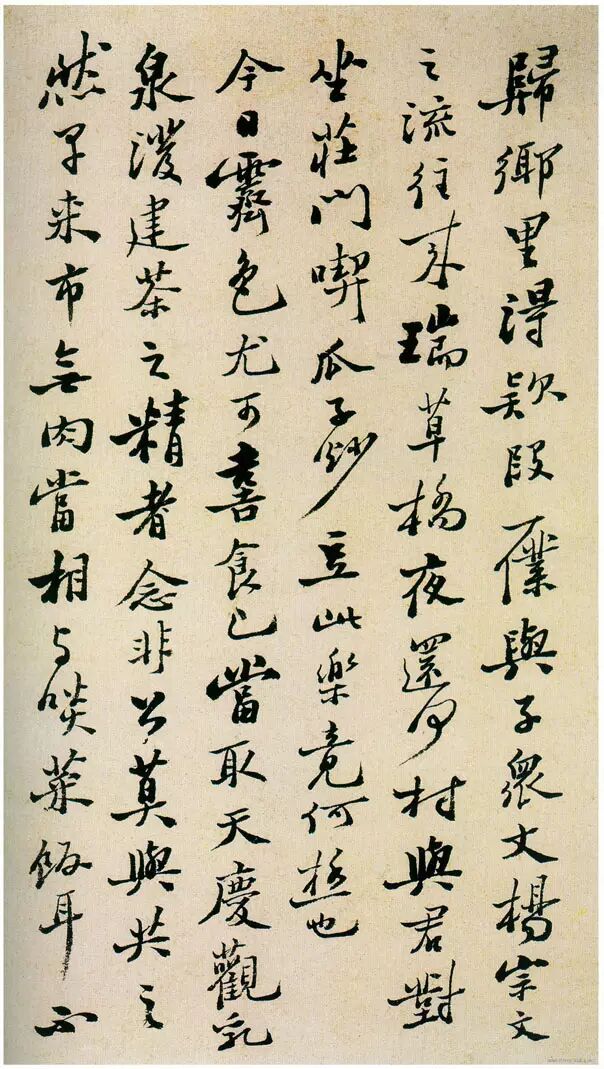 歸鄉里得款段一僕與子衆丈楊宗文
之流往來瑞草橋夜還何村與君對
坐莊門喫瓜子炒豆此樂竟何極也
今日霽色尤可喜食已當取天慶觀乳
泉潑建茶之精者念非公莫與共之
然早来市無肉當相与啖菜飯耳不